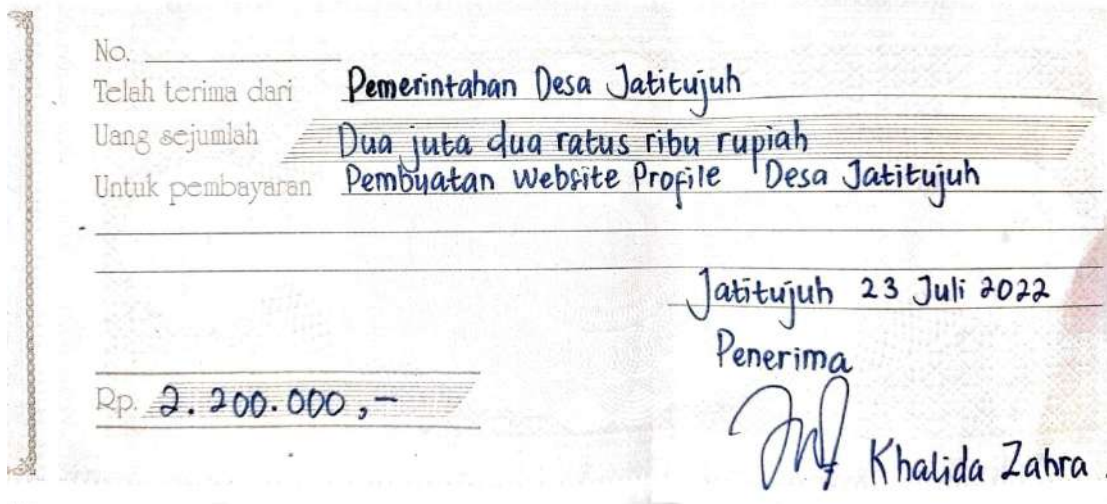 No.
Telah terima dari Pemerintahan Desa Jatitujuh
Uang sejumlah Dua juta dua ratus ribu rupiah
Untuk pembayaran Pembuatan Website Profile Desa Jatitujuh
Jatitujuh 23 Juli 2022
Penerima
Rp. 2.200.000,-
Khalida Zahra